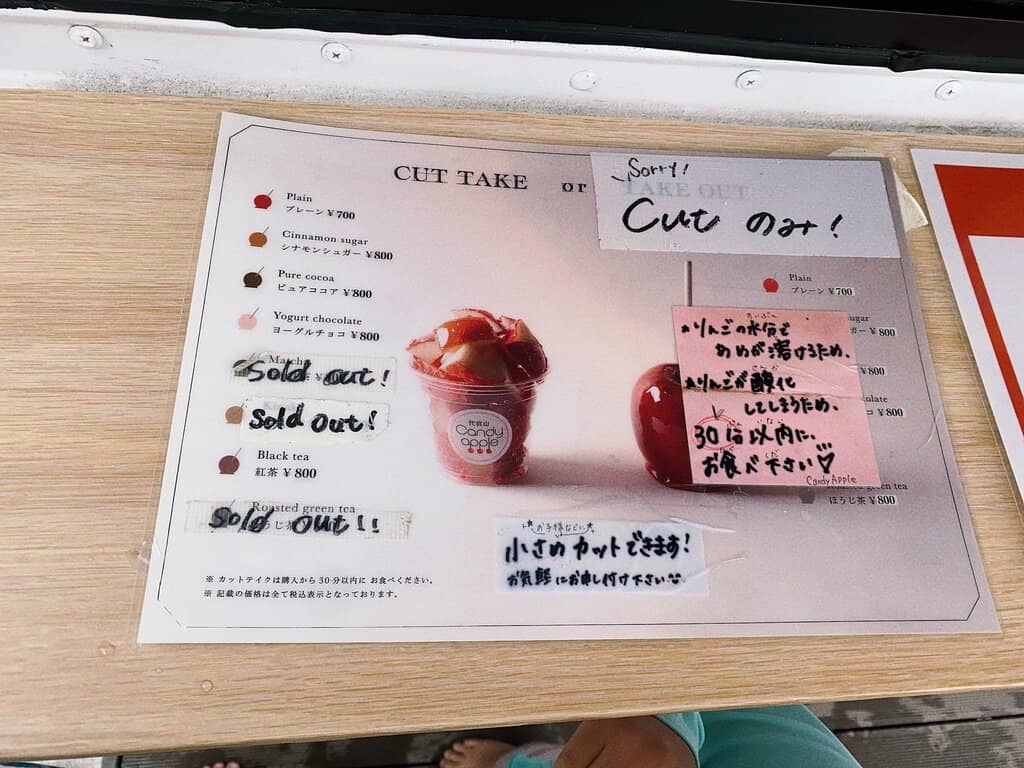 CUT TAKE or TAKE OUT
Sorry!
Cut のみ!
Plain
プレーン ¥700
Cinnamon sugar
シナモンシュガー ¥800
Pure cocoa
ピュアココア ¥800
Yogurt chocolate
ヨーグルトチョコ ¥800
Matcha
Sold out!
Sold Out!
Black tea
紅茶 ¥800
Roasted green tea
ほうじ茶
Sold out!!
※ カットテイクは購入から30分以内に お食べください。
※ 記載の価格は全て税込表示となっております。
代官山
Candy
apple
Plain
プレーン ¥700
sugar
¥800
¥800
¥800
green tea
ほうじ茶 ¥800
りんごの水分で
あめが溶けるため、
りんごが酸化
してしまうため、
30分以内に、
お食べ下さい♡
Candy Apple
お子様などに
小さめカットできます!
お気軽にお申し付け下さい